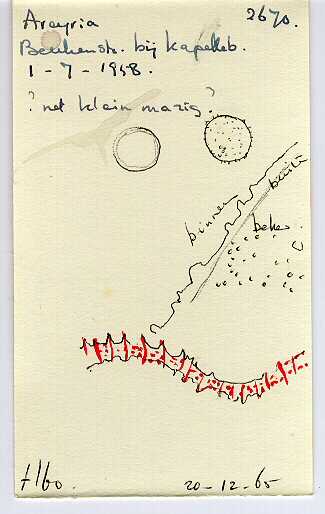 Arcyria 2670.
Beukenstr. bij Kapelleb.
1 - 7 - 1958.
? net klein mazig ?
binnen buiten
beker
20-12-65